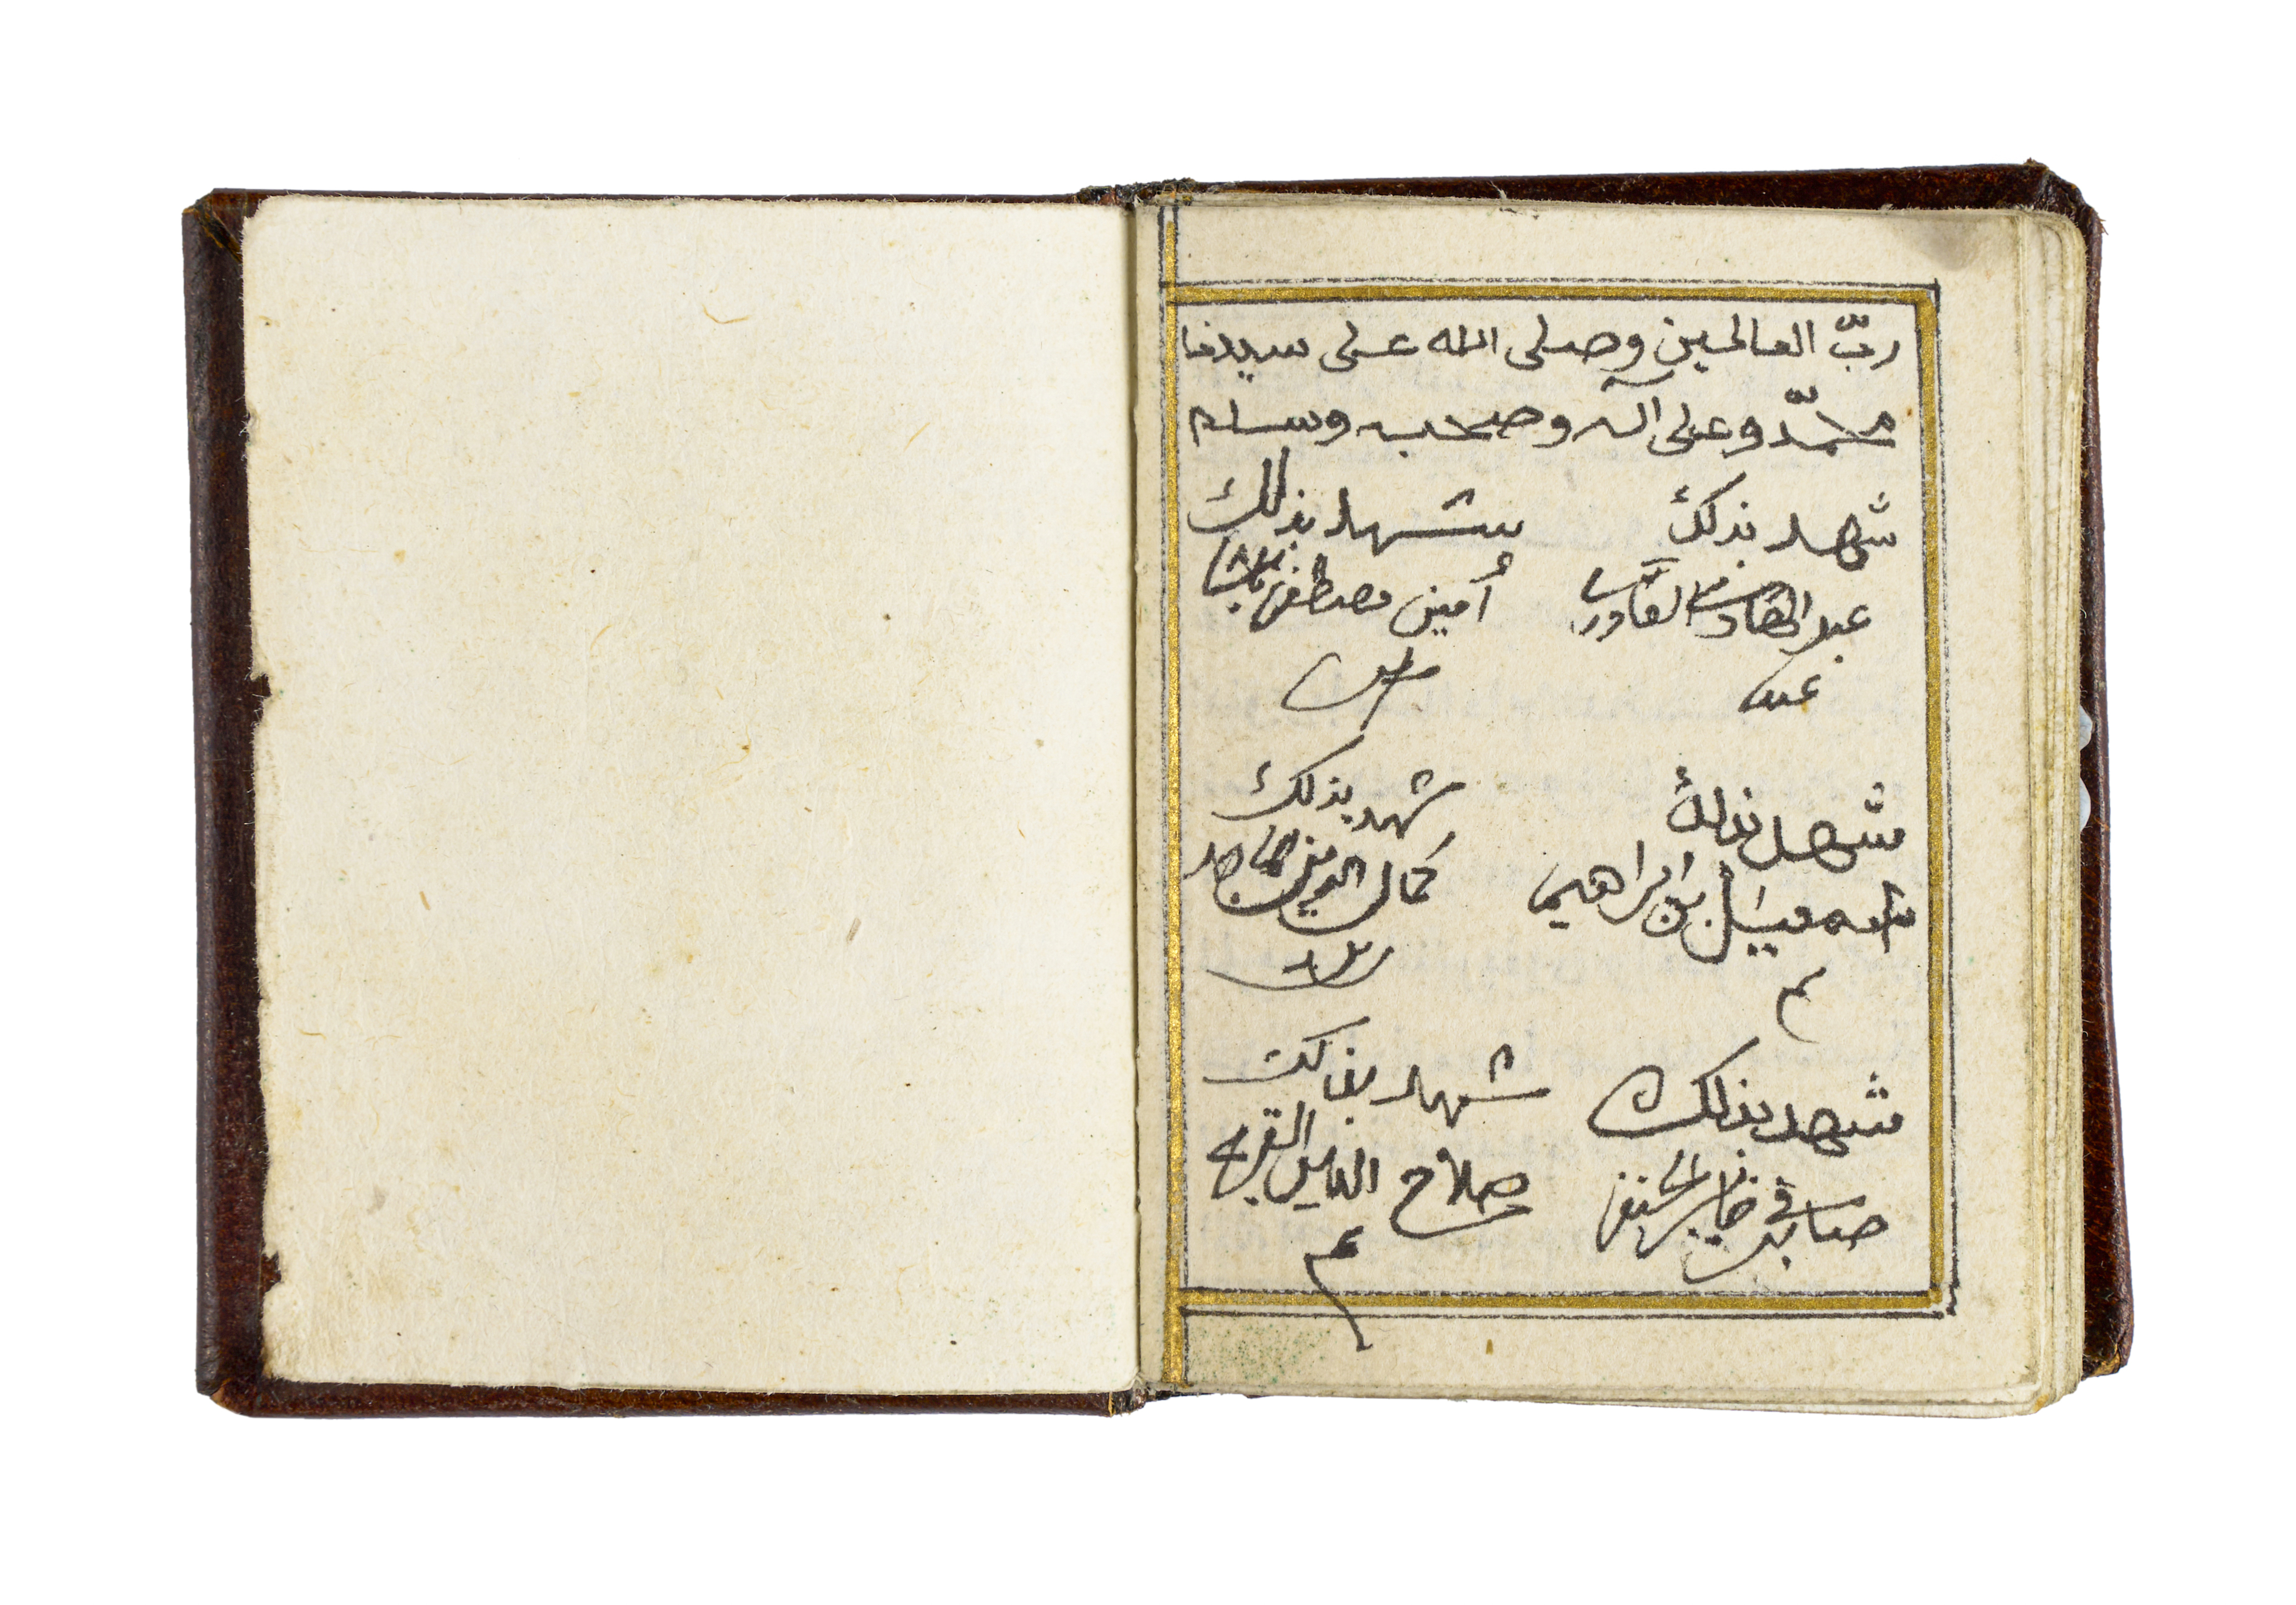 ربّ العالمين وصلى الله على سيدنا
محمّد وعلى آله وصحبه وسلم
شهد بذلك
عبد الهادي القادري
شهد بذلك
أمين مصطفى
شهد بذلك
اسمعيل بن ابراهيم
شهد بذلك
كمال الدين
شهد بذلك
صابر
شهد بذلك
صلاح الدين